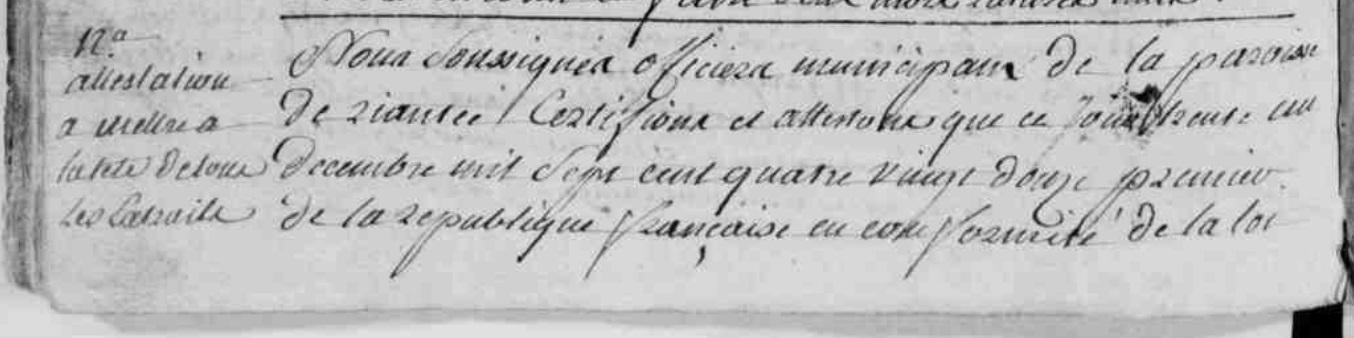 Na
attestation
a mettre a
la tete de tous
les Extraits
Nous soussignés officiers municipaux de la paroisse
de riantec Certifions et attestons que ce jour trente un
Decembre mil Sept cent quatre vingt douze premier
de la republique française en conformité de la loi